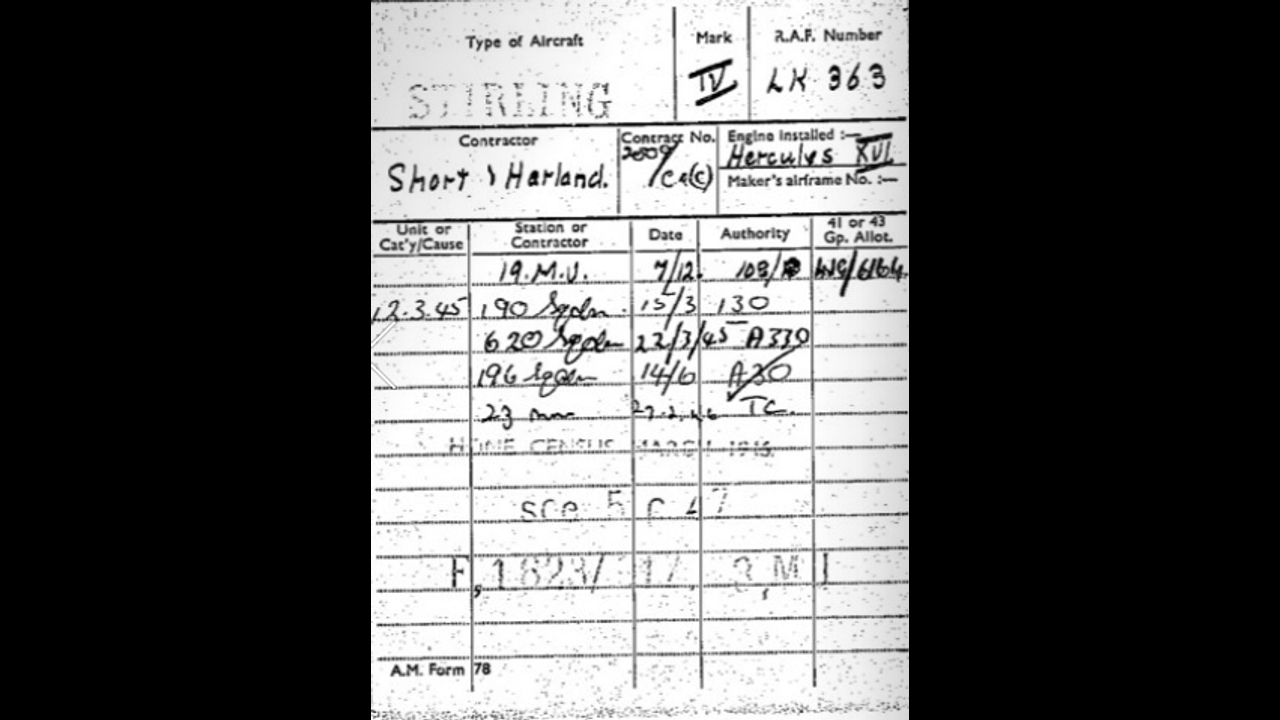 Type of Aircraft
STIRLING
Mark
IV
R.A.F. Number
LK 363
Contractor
Short & Harland.
Contract No.
/CA(C)
Engine Installed :—
Hercules XVI
Maker's airframe No. :—
Unit or Cat'y/Cause
Station or Contractor
Date
Authority
41 or 43 Gp. Allot.
19.M.U. 7/12. 108/
12.3.45 190 Sqdn. 15/3 130
620 Sqdn 22/3/45 A330
196 Sqdn 14/6 A30
23 mu 27.2.46 TC.
HOME CENSUS MARCH 1946
sce 5
A.M. Form 78